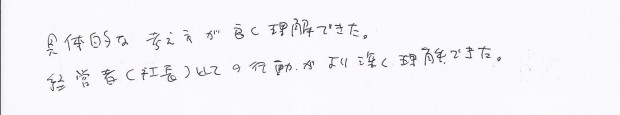 具体的な考え方が良く理解できた。
経営者(社長)としての行動がより深く理解できた。